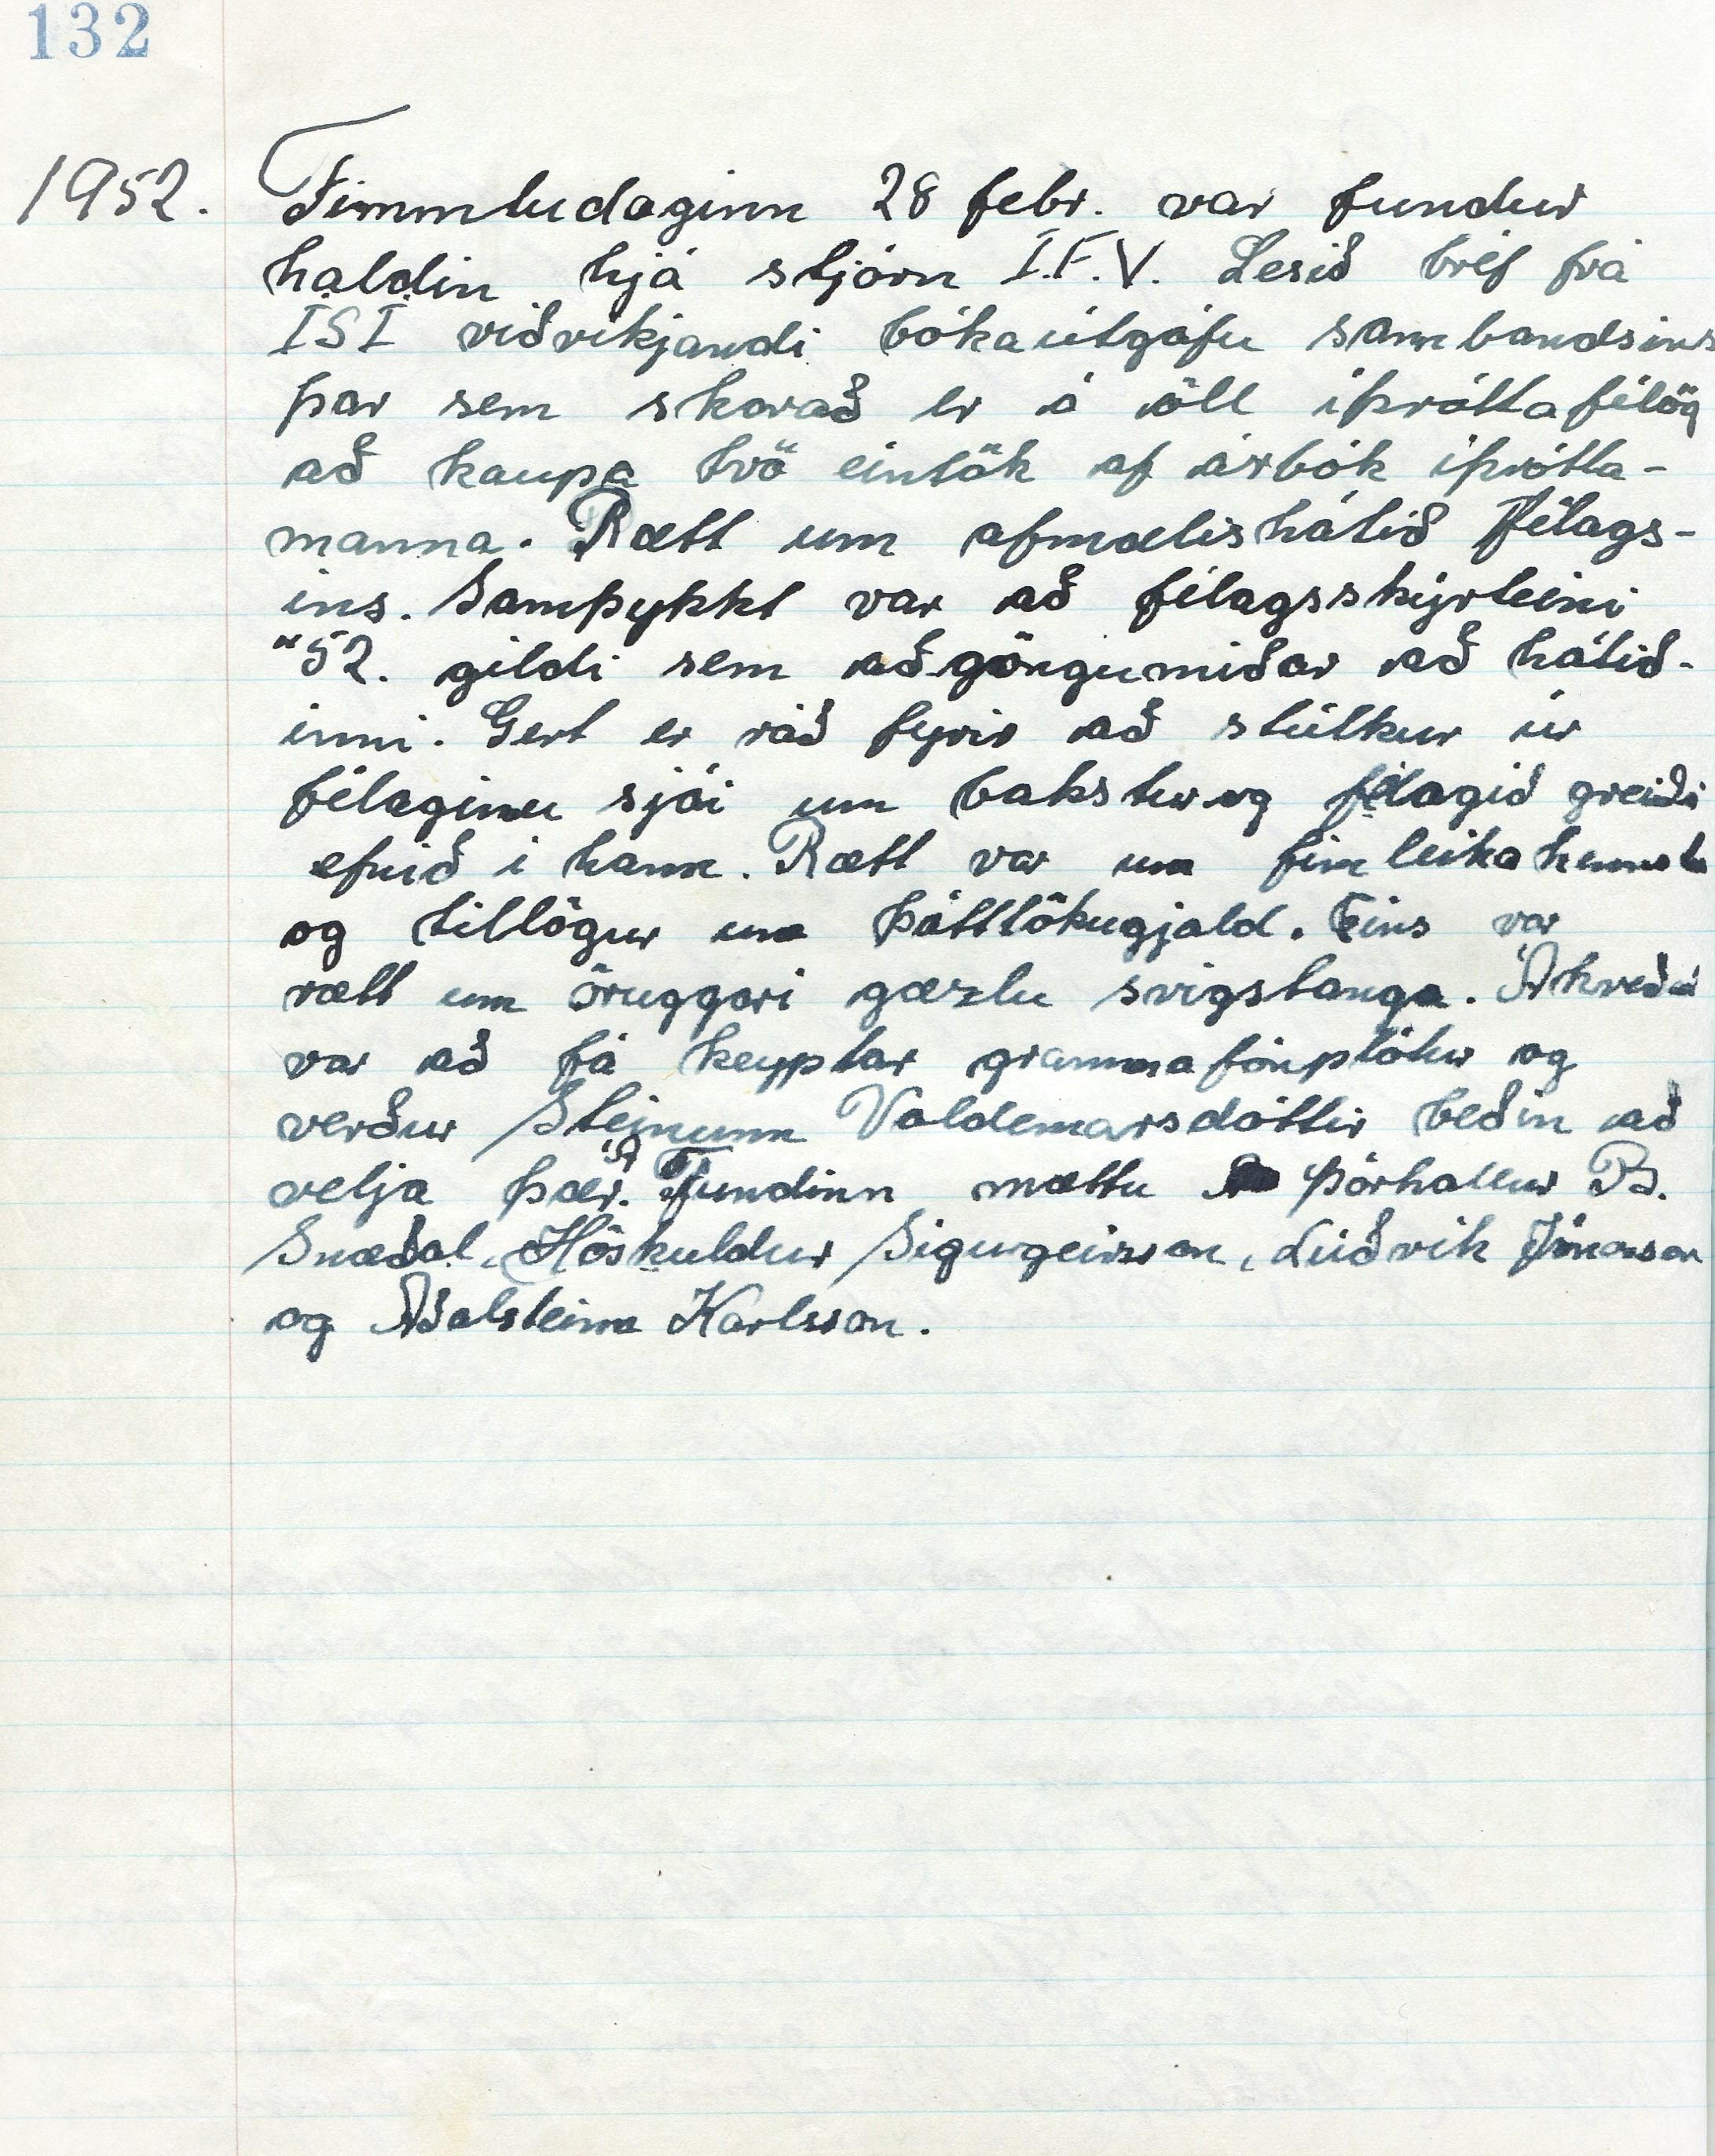 132
1952. Fimmtudaginn 28 febr. var fundur
haldin hjá stjórn Í.F.V. Lesið bréf frá
ÍSÍ viðvikjandi bókaútgáfu sambandsins
þar sem skorað er á öll íþróttafélög
að kaupa tvö eintök af árbók íþrótta-
manna. Rætt um afmælishátið félags-
ins. Samþykkt var að félagsskýrteini
"52. gildi sem aðgöngumiðar að hátið-
inni. Gert er ráð fyrir að stúlkur úr
félaginu sjái um bakstur og félagið greiði
efnið i hann. Rætt var um fimleikakennslu
og tillögur um þátttökugjald. Eins var
rætt um öruggari gæzlu svigstanga. Ákveðið
var að fá keyptar grammafónplötur og
verður Steinunn Valdemarsdóttir beðin að
velja þær. Á Fundinn mættu Þórhallur B.
Snædal, Höskuldur Sigurgeirsson, Lúðvik Jónasson
og Aðalsteinn Karlsson.